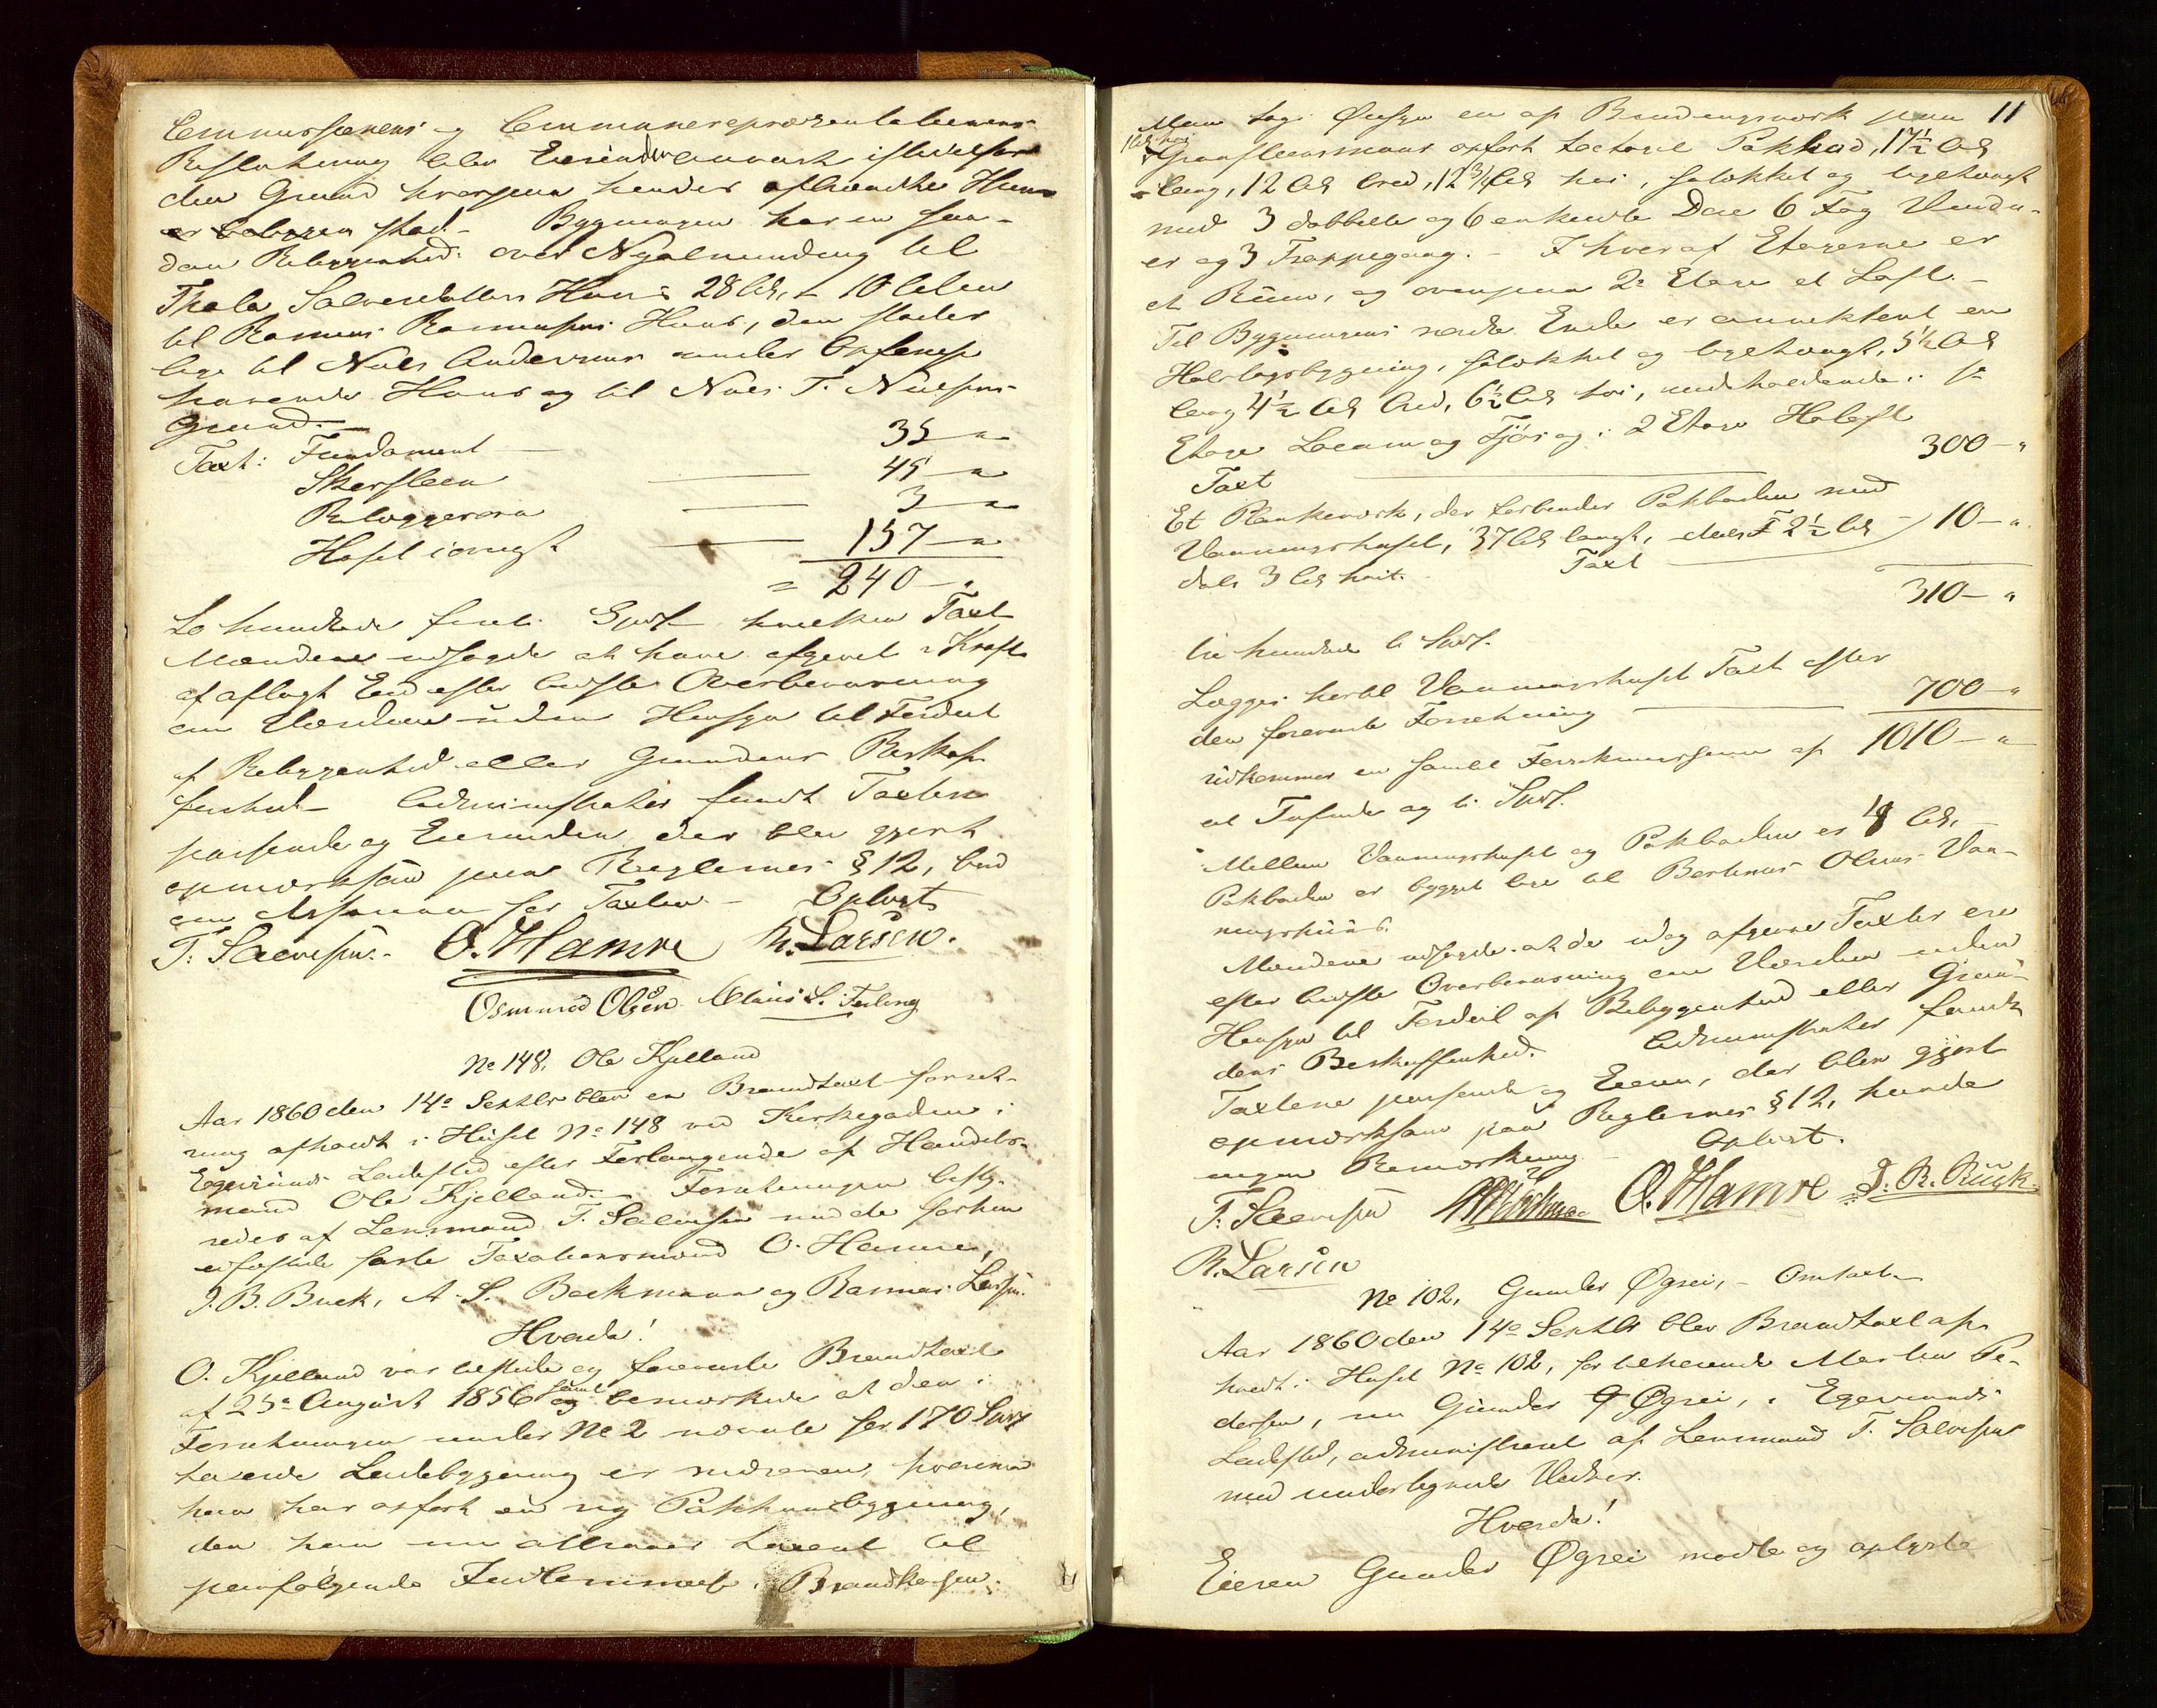 Commissionens og Communerepræsentationens
Beslutning blev Eiendommen istedetfor
den Grund hvorpaa hendes afbrændte Huus
stod. Bygningen har en saa-
dan Beliggenhed: over Nyalmending til
Thala Salvesdatters Huus 28 Al., 10 Alen
til Rasmus Rasmussens Huus, den støder
lige til Niels Andersens under Opførelse
havende Huus og til Niels T. Nielsens
Grund. —
Taxt: Fundament — 35 — "
Skorsteen — 45 — "
Bilæggerovn — 3 — "
Huset iøvrigt — 157 — "
= 240 — "
To hundrede firti Spd., hvilken Taxt
Mændene udsagde at have afgivet i Kraft
af aflagt Eed efter bedste Overbeviisning
om Værdien uden Hensyn til Fordeel
af Beliggenhed eller Grundens Beskaf-
fenhed. Administrator fandt Taxten
passende og Eierinden, der blev gjort
opmærksom paa Reglernes § 12, bad
om for Taxten. — Oplæst
T. Salvesen. O. Hamre R. Larsen.
Osmund Olsen. Claus L. Feyling
No 148. Ole Kjelland
Aar 1860 den 14de Septbr blev en Brandtaxtforret-
ning afholdt i Huset No 148 ved Kirkegaden i
Egersunds Ladested efter Forlangende af Handels-
mand Ole Kjelland. Forretningen besty-
redes af Lensmand T. Salvesen med de forhen
edfæstede faste Taxationsmænd O. Hamre,
J. B. Buck, A. S. Beckmann og Rasmus Larsen.
Hvorda!
O. Kjelland var tilstede og foreviste Brandtaxt
af 25de August 1856 samt bemærkede at den i
Forretningen under No 2 nævnte for 170 Spd
taxerede Ladebygning er nedreven, hvorimod
han har opført en ny Pakhuusbygning,
den han nu attraaer taxeret til
paafølgende Indlemmelse i Brandkassen.
11
Man tog Øiesyn en af Bindingsværk paa
Graasteensmuur opført toetages Pakbod, 17½ Al
lang, 12 Al bred, 12¾ Al høi, panelet og teglhængt
med 3 dobbelte og 6 enkelte Døre 6 Fag Vindu-
er og 3 Trappegang. — I hver af Etagerne er
et Rum, og ovenpaa 2 Etage et Loft. —
Til Bygningens nordre Ende er annektert en
Halvtagsbygning, panelet og teglhængt, 5½ Al
lang 4½ Al bred, 6½ Al høi, indeholdende i 1ste
Etage Locum og Fjøs og i 2 Etage Høloft
Taxt — 300 — "
Et Plankeværk, der forbinder Pakboden med
Vaaningshuset, 37 Al langt, deels 2½ Al
dels 3 Al høit. Taxt — 10 — "
310 — "
tre hundrede ti Spd.
Lægges hertil Vaaningshuset Taxt efter
den foreviste Forretning — 700 — "
udkommer en samlet Forsikringssum af 1010 — "
et Tusinde og ti Spd.
Mellem Vaaningshuset og Pakboden er 18 Al.
Pakboden er bygget lige til Bertinus Olsens Vaa-
ningshuus.
Mændene udsagde at de idag afgivne Taxter ere
efter bedste Overbeviisning om Værdien uden
Hensyn til Fordeel af Beliggenhed eller Grun-
dens Beskaffenhed. Administrator fandt
Taxterne passende og Eieren, der blev gjort
opmærksom paa Reglernes § 12, havde
ingen Bemærkning. — Oplæst.
T. Salvesen O. Hamre J. B. Buck.
R. Larsen
No 102, Gunder Øgrei, — Omtaxt. —
Aar 1860 den 14de Septbr blev Brandtaxt af-
holdt i Huset No 102, før tilhørende Martin Pe-
dersen, nu Gunder Øgrei, i Egersunds
Ladested, administreret af Lensmand T. Salvesen
med undertegnede Vidner.
Hvorda!
Eieren Gunder Øgrei mødte og oplyste